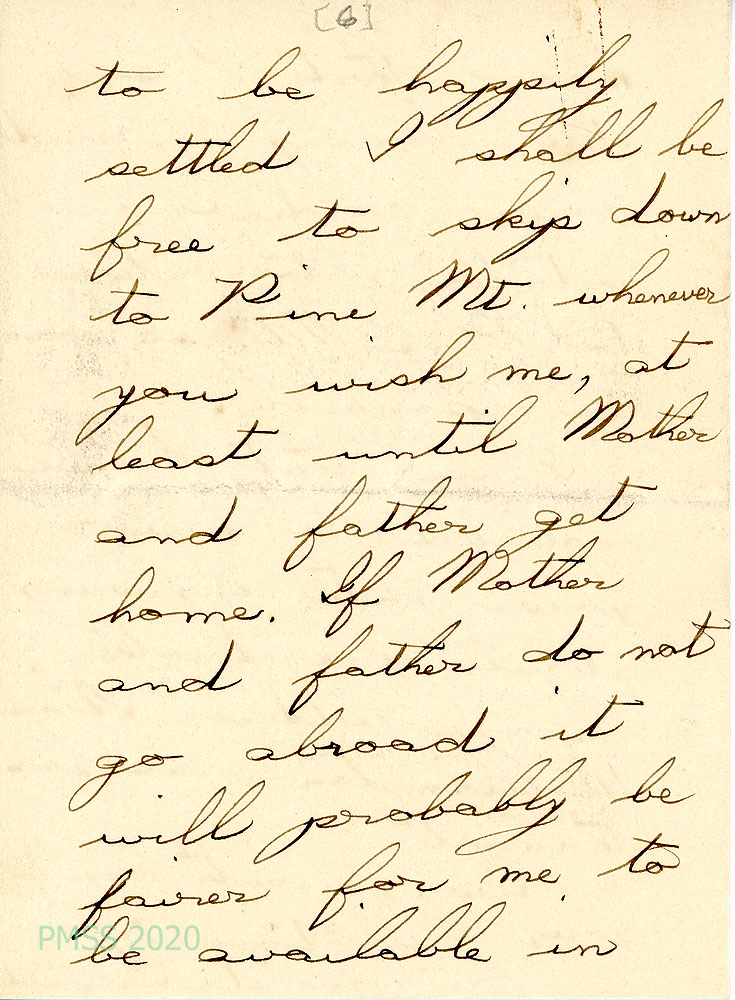 [6]
to be happily
settled I shall be
free to skip down
to Pine Mt. whenever
you wish me, at
least until Mother
and father get
home. If Mother
and father do not
go abroad it
will probably be
fairer for me to
be available in
PMSS 2020